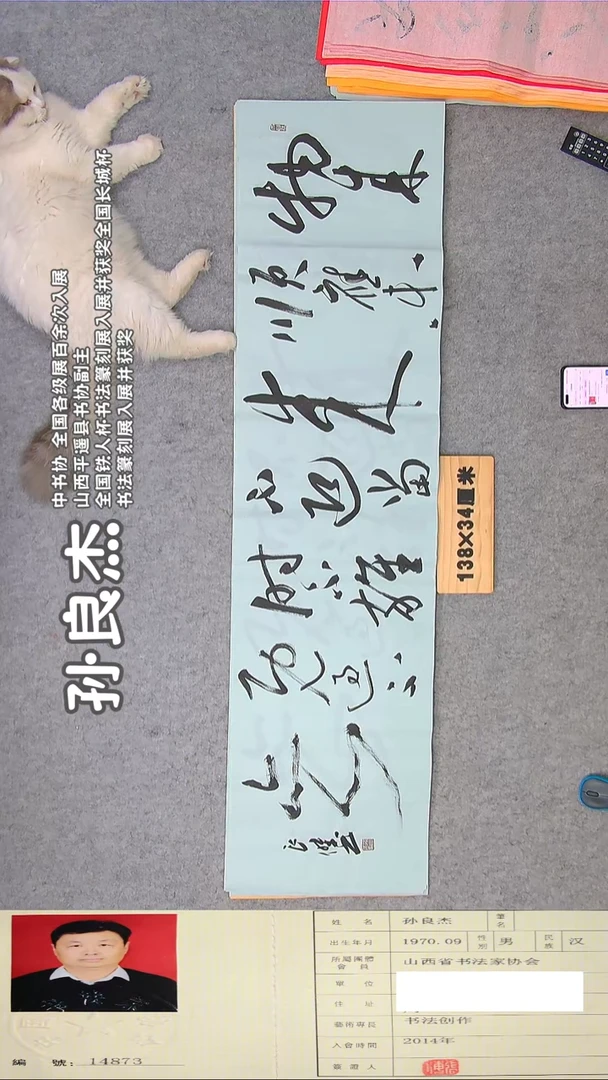 物来
顺應
未来
不迎当
时不雜
既过不
恋
138×34厘米
中书协 全国各级展百余次入展
山西平遥县书协副主
全国铁人杯书法篆刻展入展并获奖全国长城杯
书法篆刻展入展并获奖
孙良杰
姓 名 孙良杰 筆名
出生年月 1970.09 性别 男 民族 汉
所屬團體會員 山西省书法家协会
單 位
住 址
藝術專長 书法创作
入會時間 2014年
簽證人
編 號: 14873